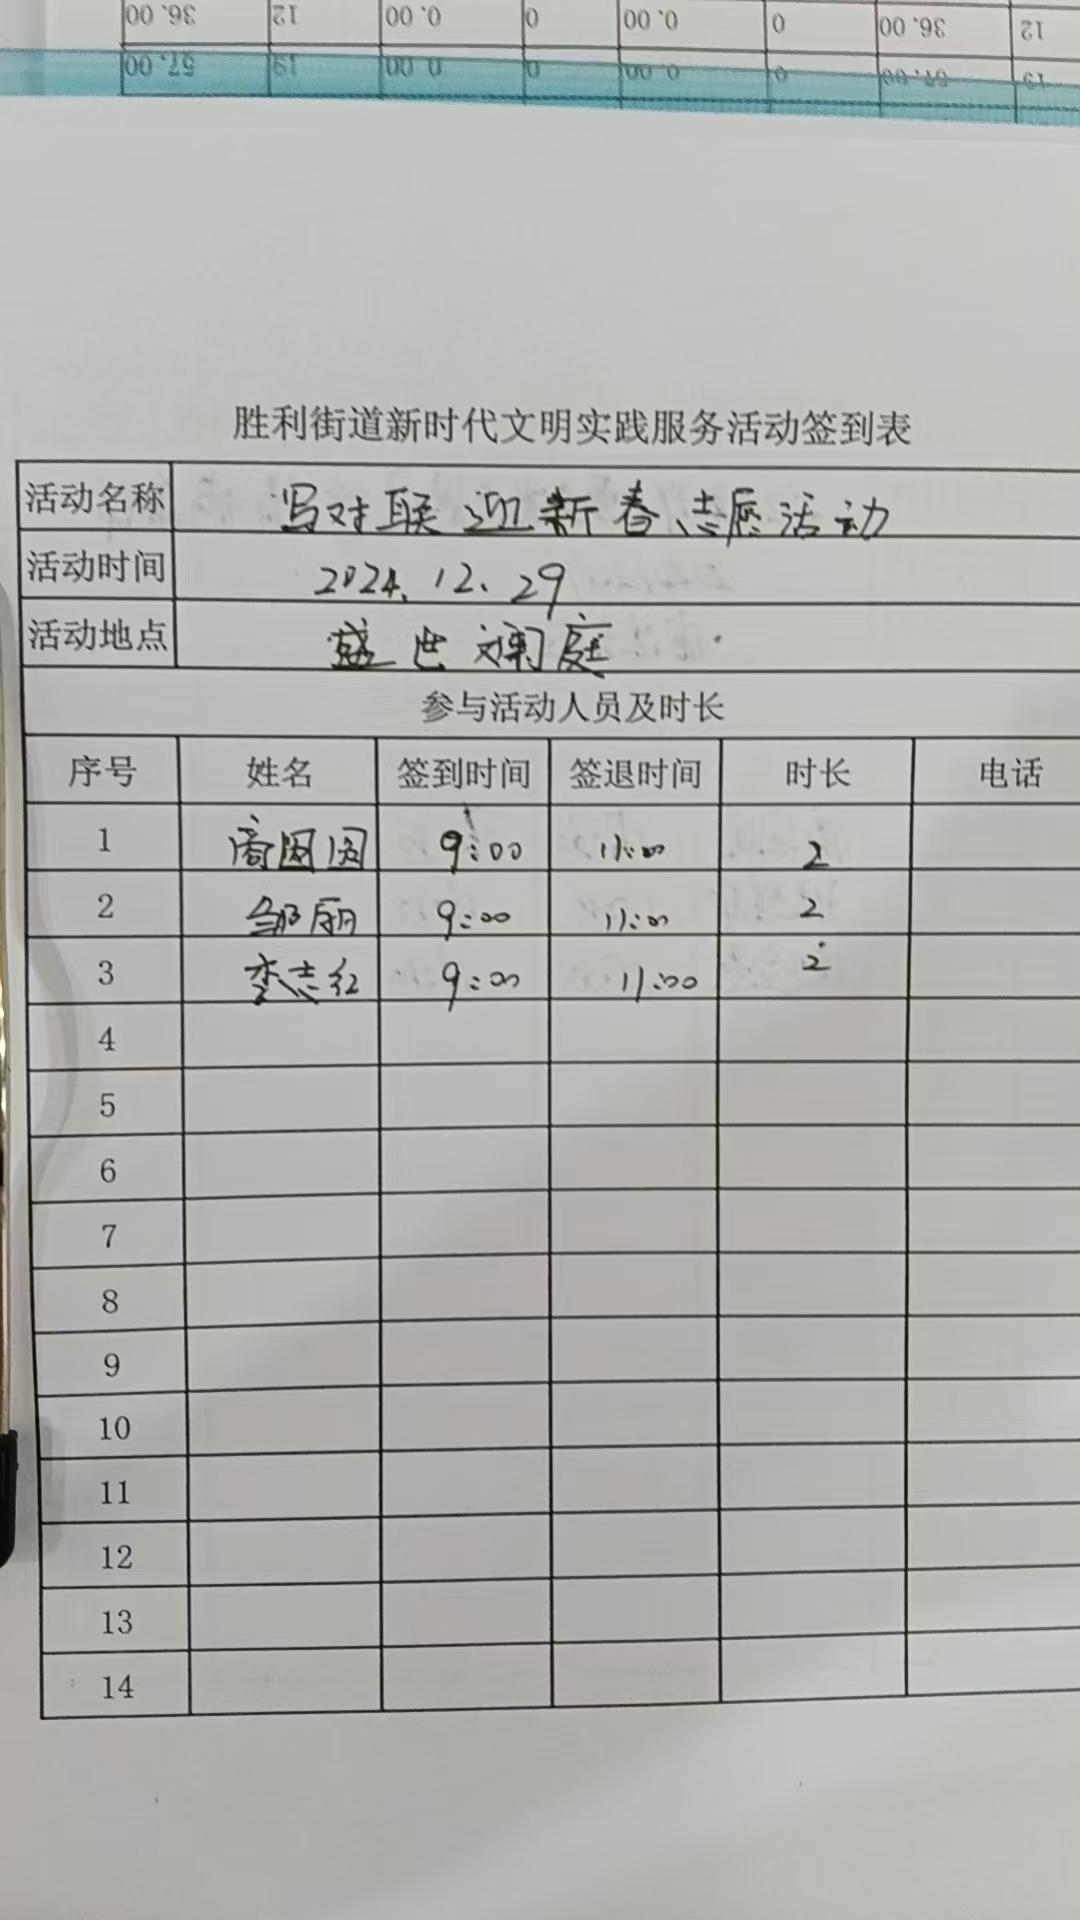 36.00 12 0.00 0 0.00 0 36.00 12
57.00 19 0.00 0 0.00 0 57.00 19
胜利街道新时代文明实践服务活动签到表
活动名称 写对联迎新春志愿活动
活动时间 2024.12.29
活动地点 盛世澜庭
参与活动人员及时长
序号 姓名 签到时间 签退时间 时长 电话
1 周团园 9:00 11:00 2
2 邹丽 9:00 11:00 2
3 李志红 9:00 11:00 2
4
5
6
7
8
9
10
11
12
13
14